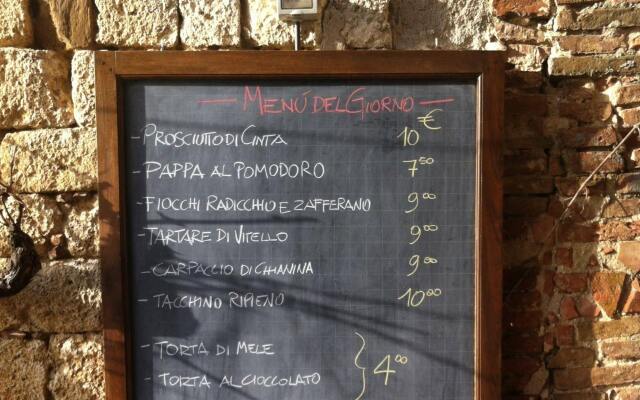 — MENÚ DEL GIORNO —
- PROSCIUTTO DI CINTA 10 €
- PAPPA AL POMODORO 7 50
- FIOCCHI RADICCHIO E ZAFFERANO 9 00
- TARTARE DI VITELLO 9 00
- CARPACCIO DI CHIANINA 9 00
- TACCHINO RIPIENO 10 00
- TORTA DI MELE
- TORTA AL CIOCCOLATO } 4 00